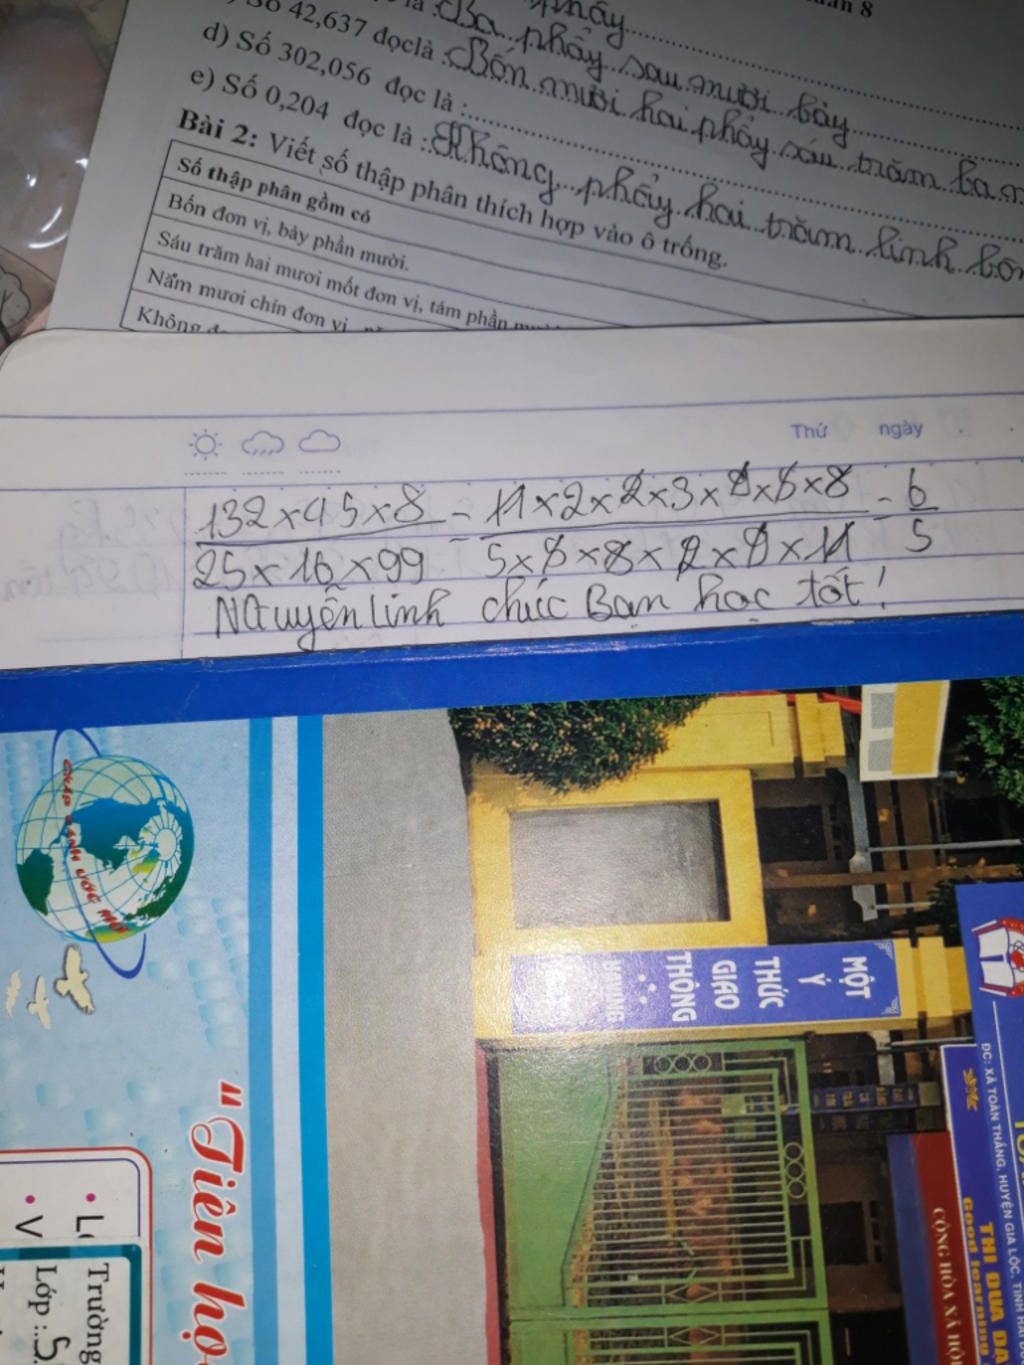 phẩy
Ba phẩy sáu mươi bảy
Số 42,637 đọc là : Bốn mươi hai phẩy sáu trăm ba m
d) Số 302,056 đọc là :
e) Số 0,204 đọc là : Không phẩy hai trăm linh bốn
Bài 2: Viết số thập phân thích hợp vào ô trống.
Số thập phân gồm có
Bốn đơn vị, bảy phần mười.
Sáu trăm hai mươi mốt đơn vị, tám phần
Năm mươi chín đơn vị
Không
Thứ ngày
132×45×8 / 25×16×99 = 11×2×2×3×9×5×8 / 5×5×8×2×9×11 = 6 / 5
Nguyễn Linh chúc Bạn học tốt!
CHẮP CÁNH ƯỚC MƠ
MỘT
Ý
THỨC
GIAO
THÔNG
ĐC: XÃ TOÀN THẮNG, HUYỆN GIA LỘC, TỈNH HẢI
THI ĐUA DẠ
Good learning
CỘNG HÒA XÃ HỘ
"Tiên họ
Trường
Lớp : 5